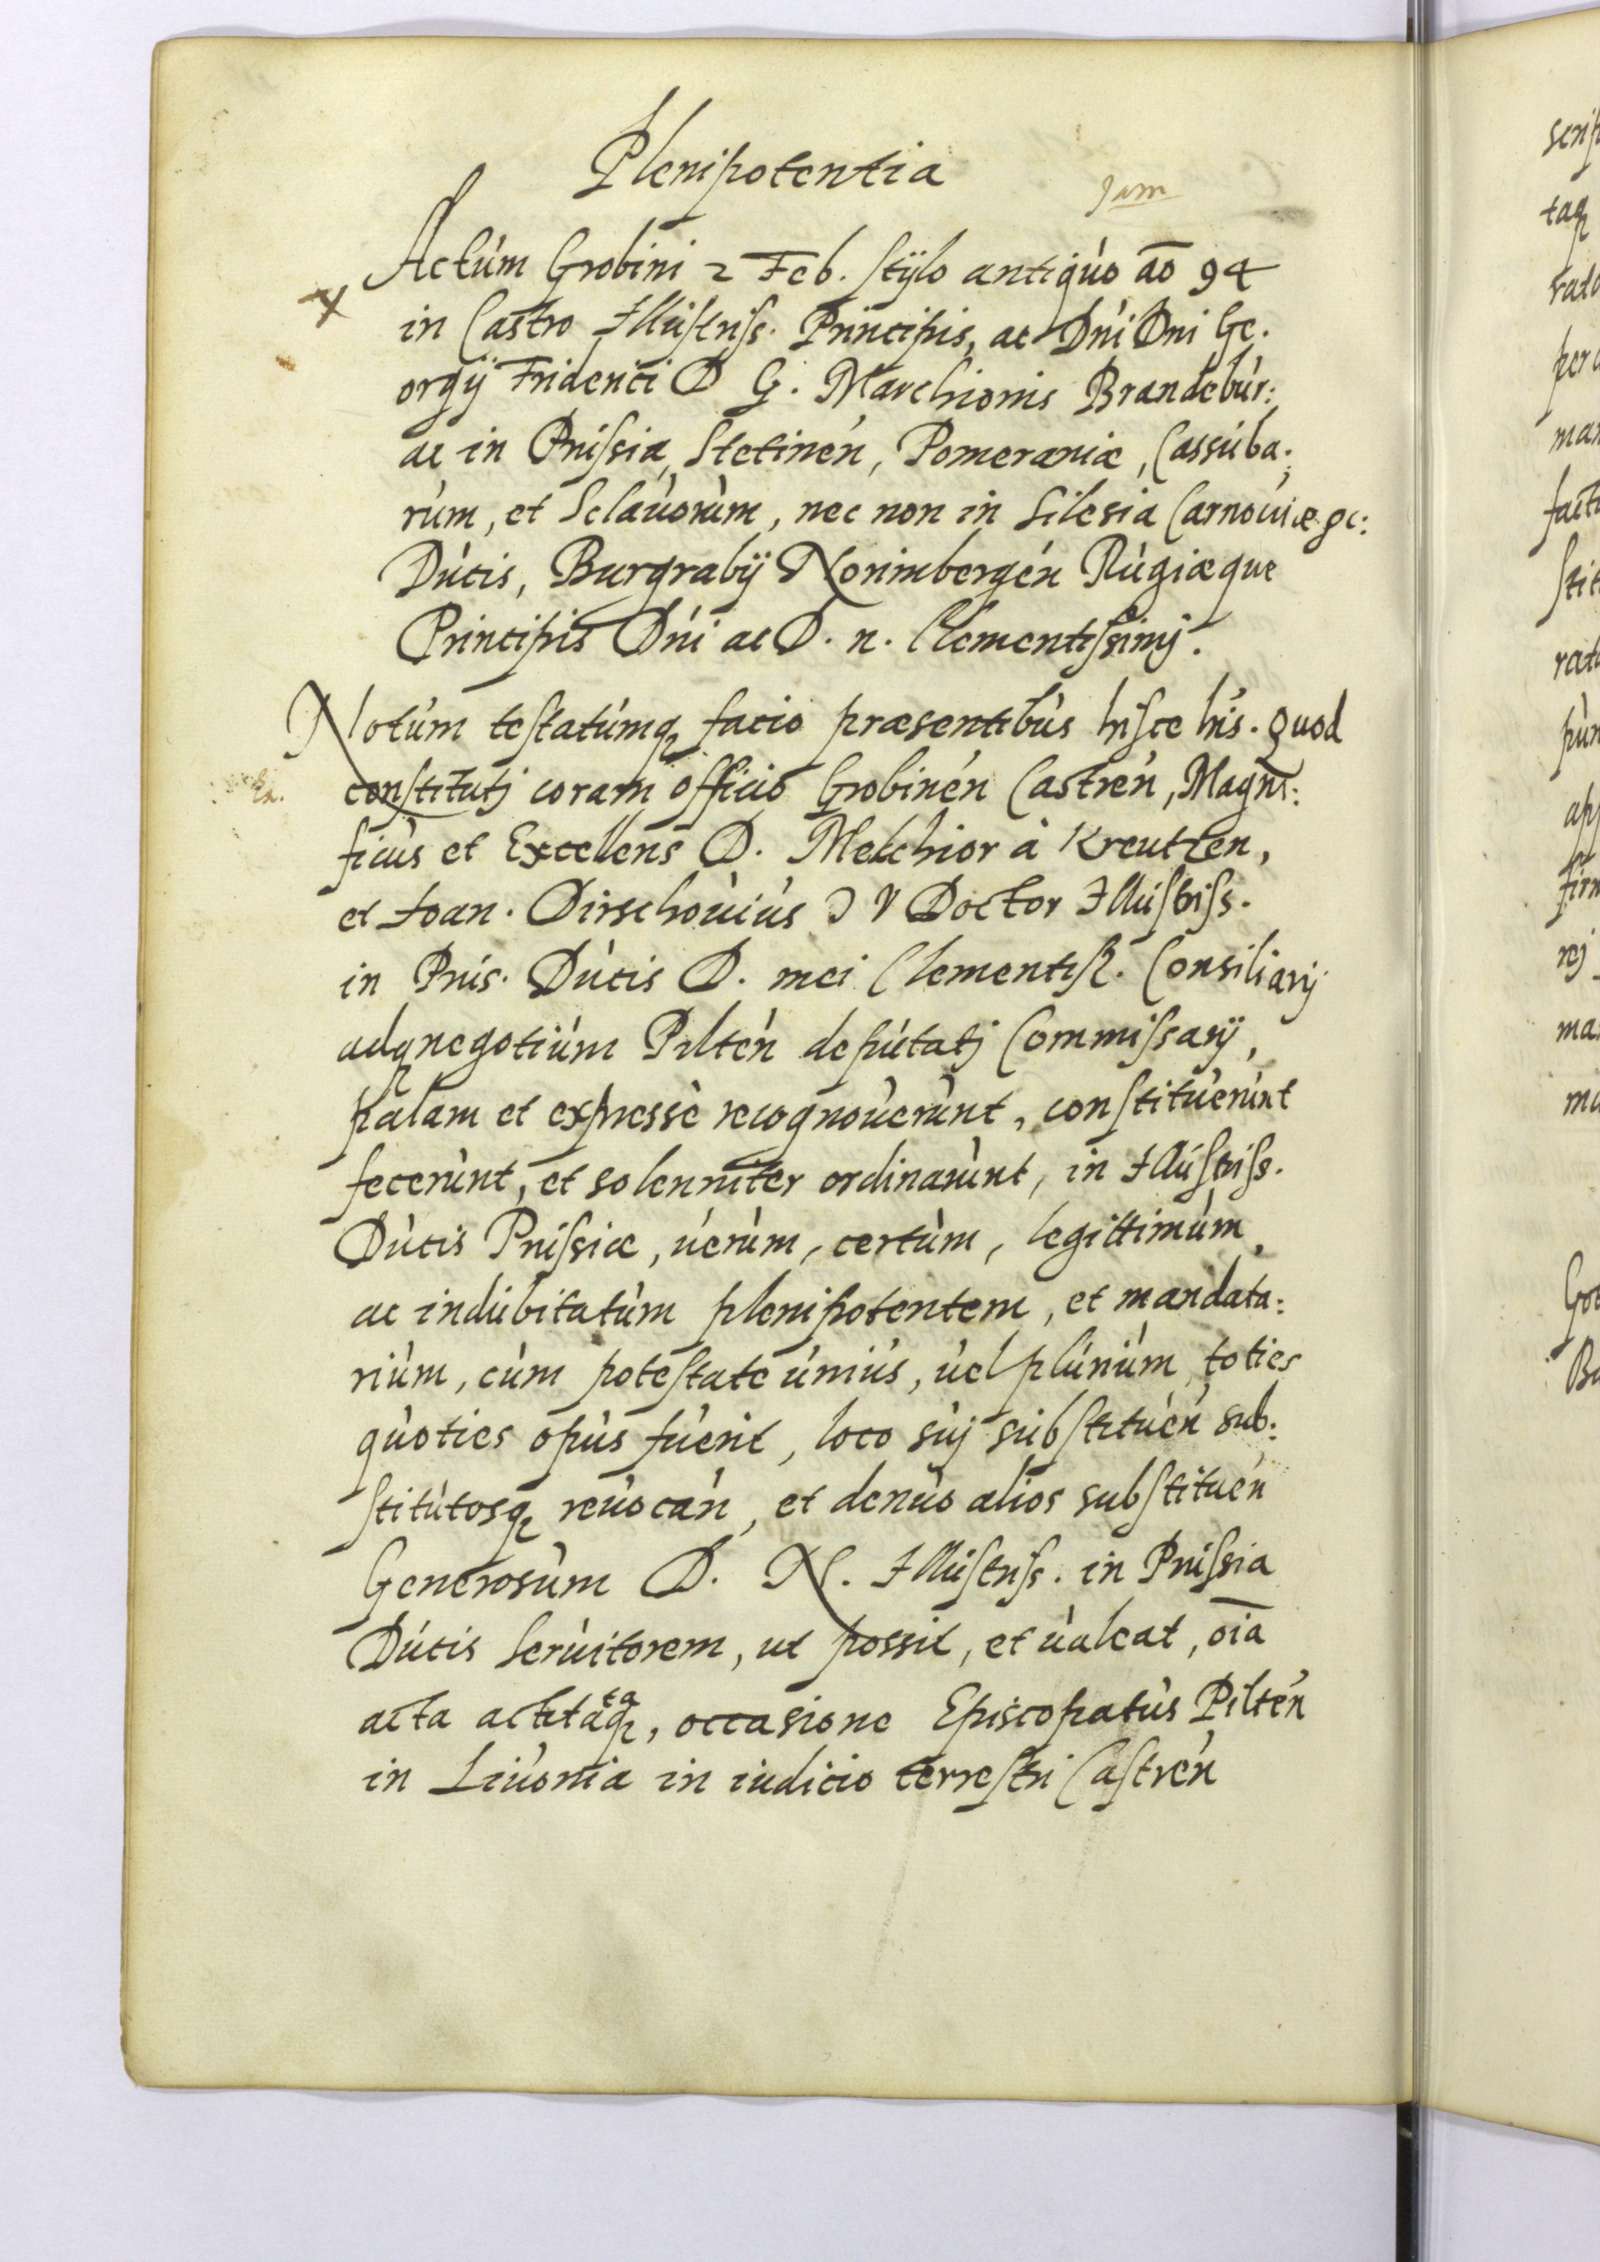 Plenipotentia
Jam
Actum Grobini 2 Feb. stÿlo antiquo ao 94
in Castro Illustriss. Principis, ac Dni Dni Ge.
orgÿ Friderici D G. Marchionis Brandebur:
ac in Prussia, Stetinen, Pomeraniæ, Cassuba:
rum, et Sclauorum, nec non in Silesia Carnouiæ &c:
Ducis, Burgrabÿ Norimbergen Rugiæque
Principis Dni ac D. n. Clementissimj.
Notum testatumq facio præsentibus hisce lris. Quod
constitutj coram officio Grobinen Castren, Magni:
ficus et Excellens D. Melchior à Kreutzen,
et Joan. Dirschouius J V Doctor Illustriss.
in Prus. Ducis D. mei Clementiss. Consiliarij
adq negotium Pilten deputatj Commissarÿ,
palam et expressè recognouerunt, constituerunt
fecerunt, et solenniter ordinarunt, in Illustriss.
Ducis Prussiæ, uerum, certum, legittimum,
ac indubitatum plenipotentem, et mandata:
rium, cum potestate unius, uel plurium, toties
quoties opus fuerit, loco suj substituen sub:
stitutosq reuocan, et denuo alios substituen
Generosum D. N. Illustriss. in Prussia
Ducis Seruitorem, ut possit, et ualeat, oia
acta actitataq, occasione Episcopatus Pilten
in Liuonia in iudicio terrestri Castren